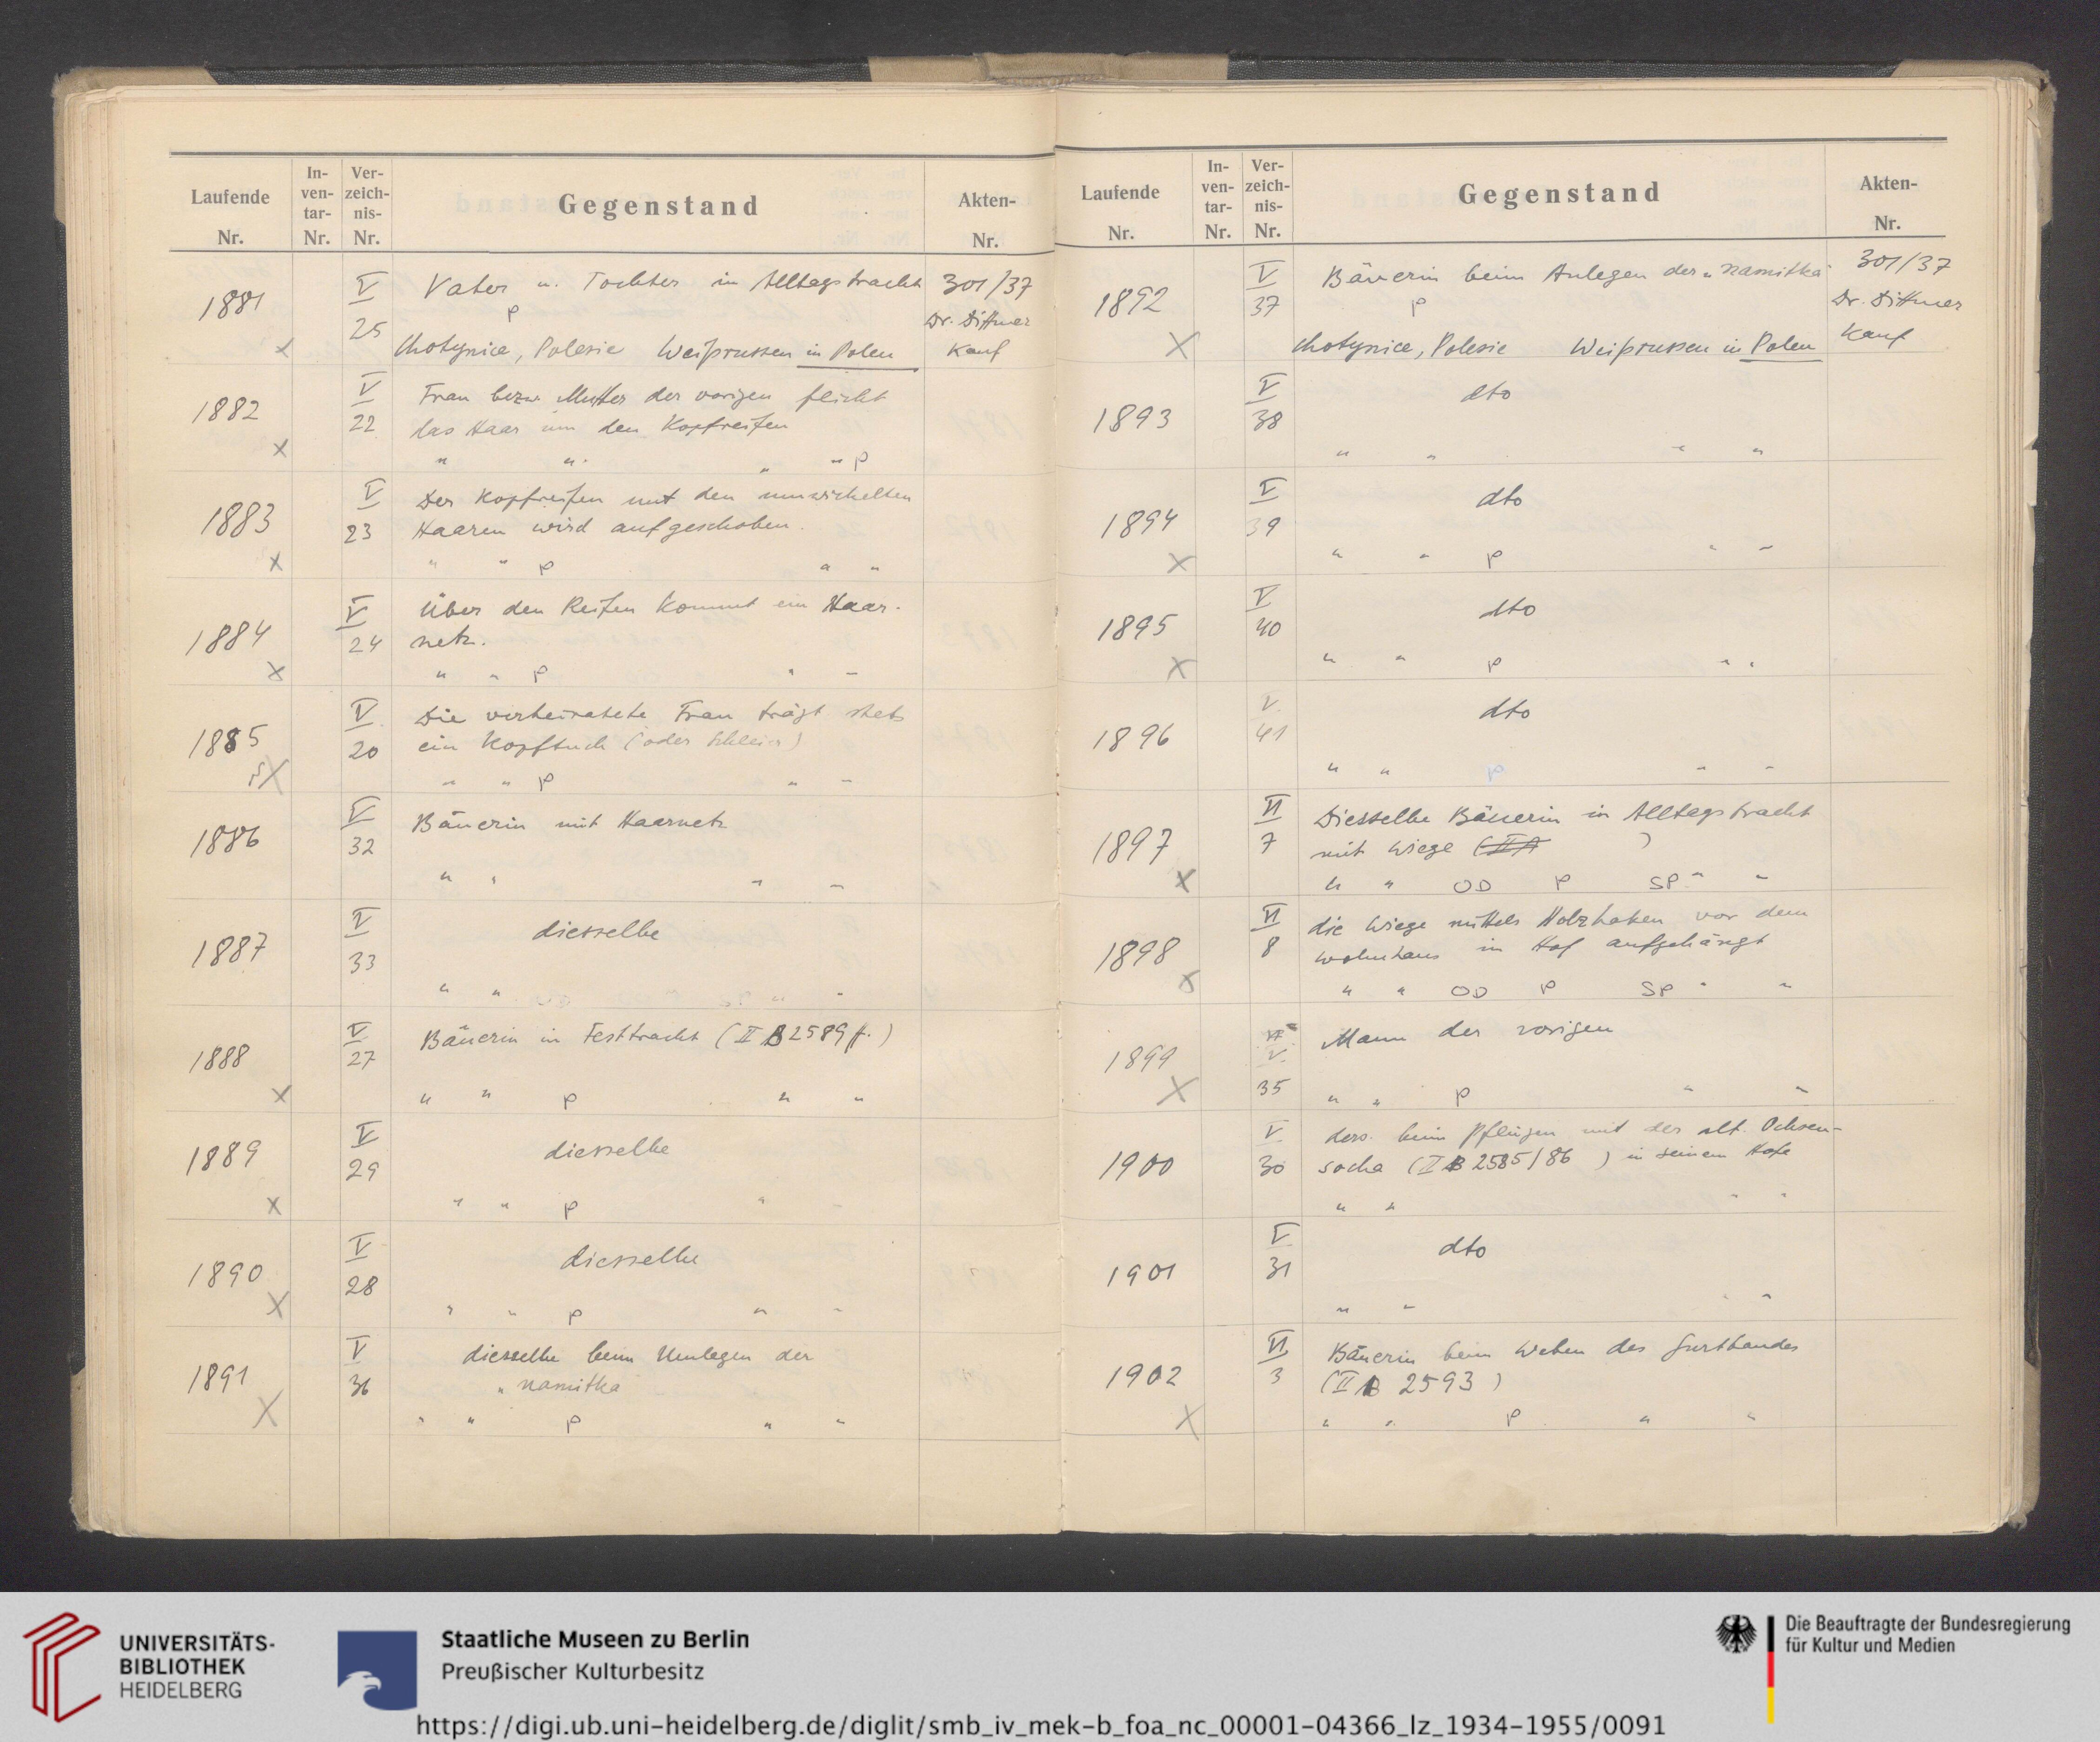 Laufende Nr. In-ven-tar-Nr. Ver-zeich-nis-Nr. Gegenstand Akten-Nr.
1881 V 25 Vater u. Tochter in Alltagstracht 301/37
p Dr. Dittmer
Chotynice, Polesie Weißrussen in Polen Kauf
x
1882 V 22 Frau bezw. Mutter der vorigen flicht
das Haar um den Kopfreifen
x " " " " p
1883 V 23 Der Kopfreifen mit den umwickelten
Haaren wird aufgeschoben.
x " " p " "
1884 V 24 Über den Reifen kommt ein Haar-
netz.
x " " p " "
1885 V 20 Die verheiratete Frau trägt stets
ein Kopftuch (oder Schleier)
x " " p " "
1886 V 32 Bäuerin mit Haarnetz
" " " "
1887 V 33 dieselbe
" " " "
1888 V 27 Bäuerin in Festtracht (II B 2589 ff.)
x " " p " "
1889 V 29 dieselbe
x " " p " "
1890 V 28 dieselbe
x " " p " "
1891 V 36 dieselbe beim Umlegen der
"namitka
x " " p " "
Laufende Nr. In-ven-tar-Nr. Ver-zeich-nis-Nr. Gegenstand Akten-Nr.
1892 V 37 Bäuerin beim Anlegen der "namitka" 301/37
p Dr. Dittmer
x Chotynice, Polesie Weißrussen in Polen Kauf
1893 V 38 dto
" " " "
1894 V 39 dto
x " " p " "
1895 V 40 dto
x " " p " "
1896 V 41 dto
" " p " "
1897 VI 7 Diesselbe Bäuerin in Alltagstracht
mit Wiege (II A )
x " " OD p SP " "
1898 VI 8 die Wiege mittels Holzhaken vor dem
Wohnhaus in Hof aufgehängt
x " " OD p SP " "
1899 VI V 35 Mann der vorigen
x " " p " "
1900 V 30 ders. beim Pflügen mit der alt. Ochsen-
socha (II B 2585/86 ) in seinem Hofe
" " " "
1901 V 31 dto
" " " "
1902 VI 3 Bäuerin beim Weben des Gurtbandes
(II B 2593)
x " " p " "
UNIVERSITÄTS-
BIBLIOTHEK
HEIDELBERG
Staatliche Museen zu Berlin
Preußischer Kulturbesitz
Die Beauftragte der Bundesregierung
für Kultur und Medien
https://digi.ub.uni-heidelberg.de/diglit/smb_iv_mek-b_foa_nc_00001-04366_lz_1934-1955/0091